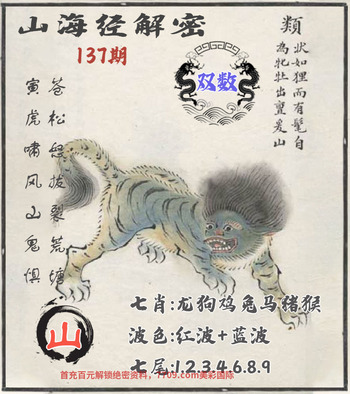 山海经解密
137期
類
状如狸而有髦自
為牝牡出亶爰山
双数
寅虎啸风山鬼惧
苍松怒拔裂荒塘
山
七肖:龙狗鸡兔马猪猴
波色:红波+蓝波
七尾:1.2.3.4.6.8.9
首充百元解锁绝密资料，美彩国际